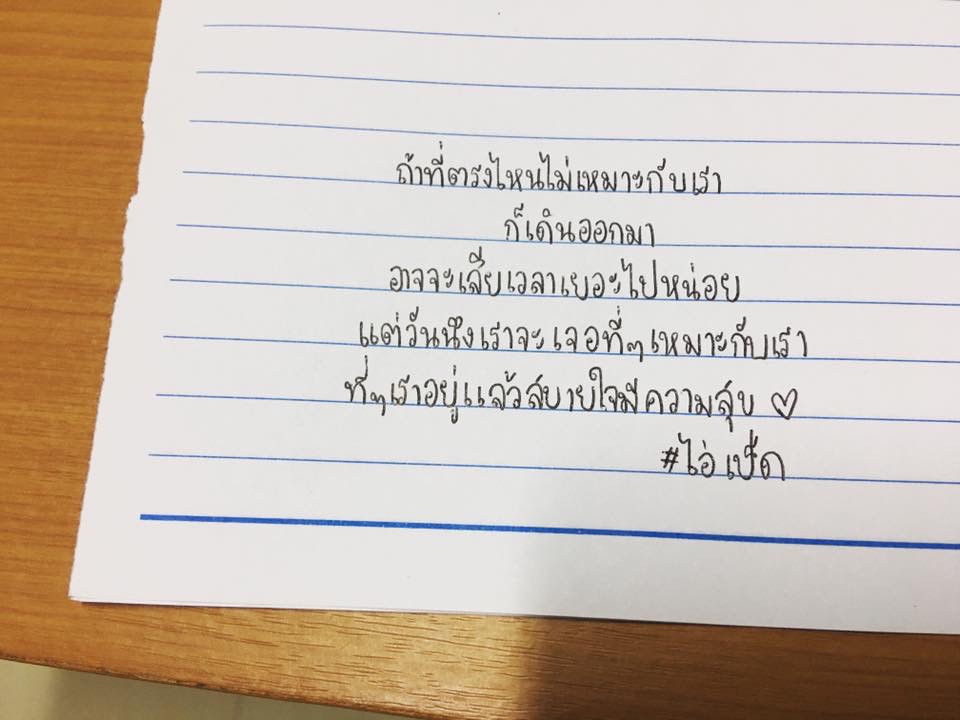 ถ้าที่ตรงไหนไม่เหมาะกับเรา
ก็เดินออกมา
อาจจะเสียเวลาเยอะไปหน่อย
แต่วันนึงเราจะเจอที่ๆเหมาะกับเรา
ที่ๆเราอยู่แล้วสบายใจมีความสุข ♡
#ไอ่เป็ด